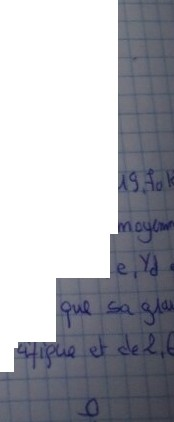 19,70k
moyenn
e, Yd
que sa gran
ifique et de 2,6